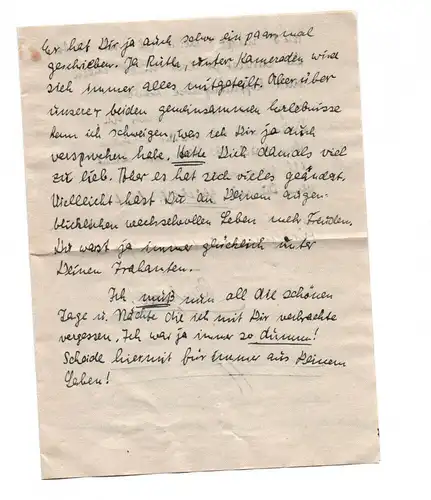 Er hat Dir ja auch schon ein paarmal
geschrieben. Ja Ruth, unter Kameraden wird
sich immer alles mitgeteilt. Aber über
unsere beiden gemeinsammen Erlebnisse
kann ich schweigen, was ich Dir ja auch
versprochen habe. Hatte Dich damals viel
zu lieb. Aber es hat sich vieles geändert.
Vielleicht hast Du an Deinem augen-
blicklichen wechselvollen Leben mehr Freuden.
Du warst ja immer glücklich unter
Deinen Trabanten.
Ich muß nun all die schönen
Tage u. Nächte die ich mit Dir verbrachte
vergessen. Ich war ja immer so dumm!
Scheide hiermit für immer aus Deinem
Leben!